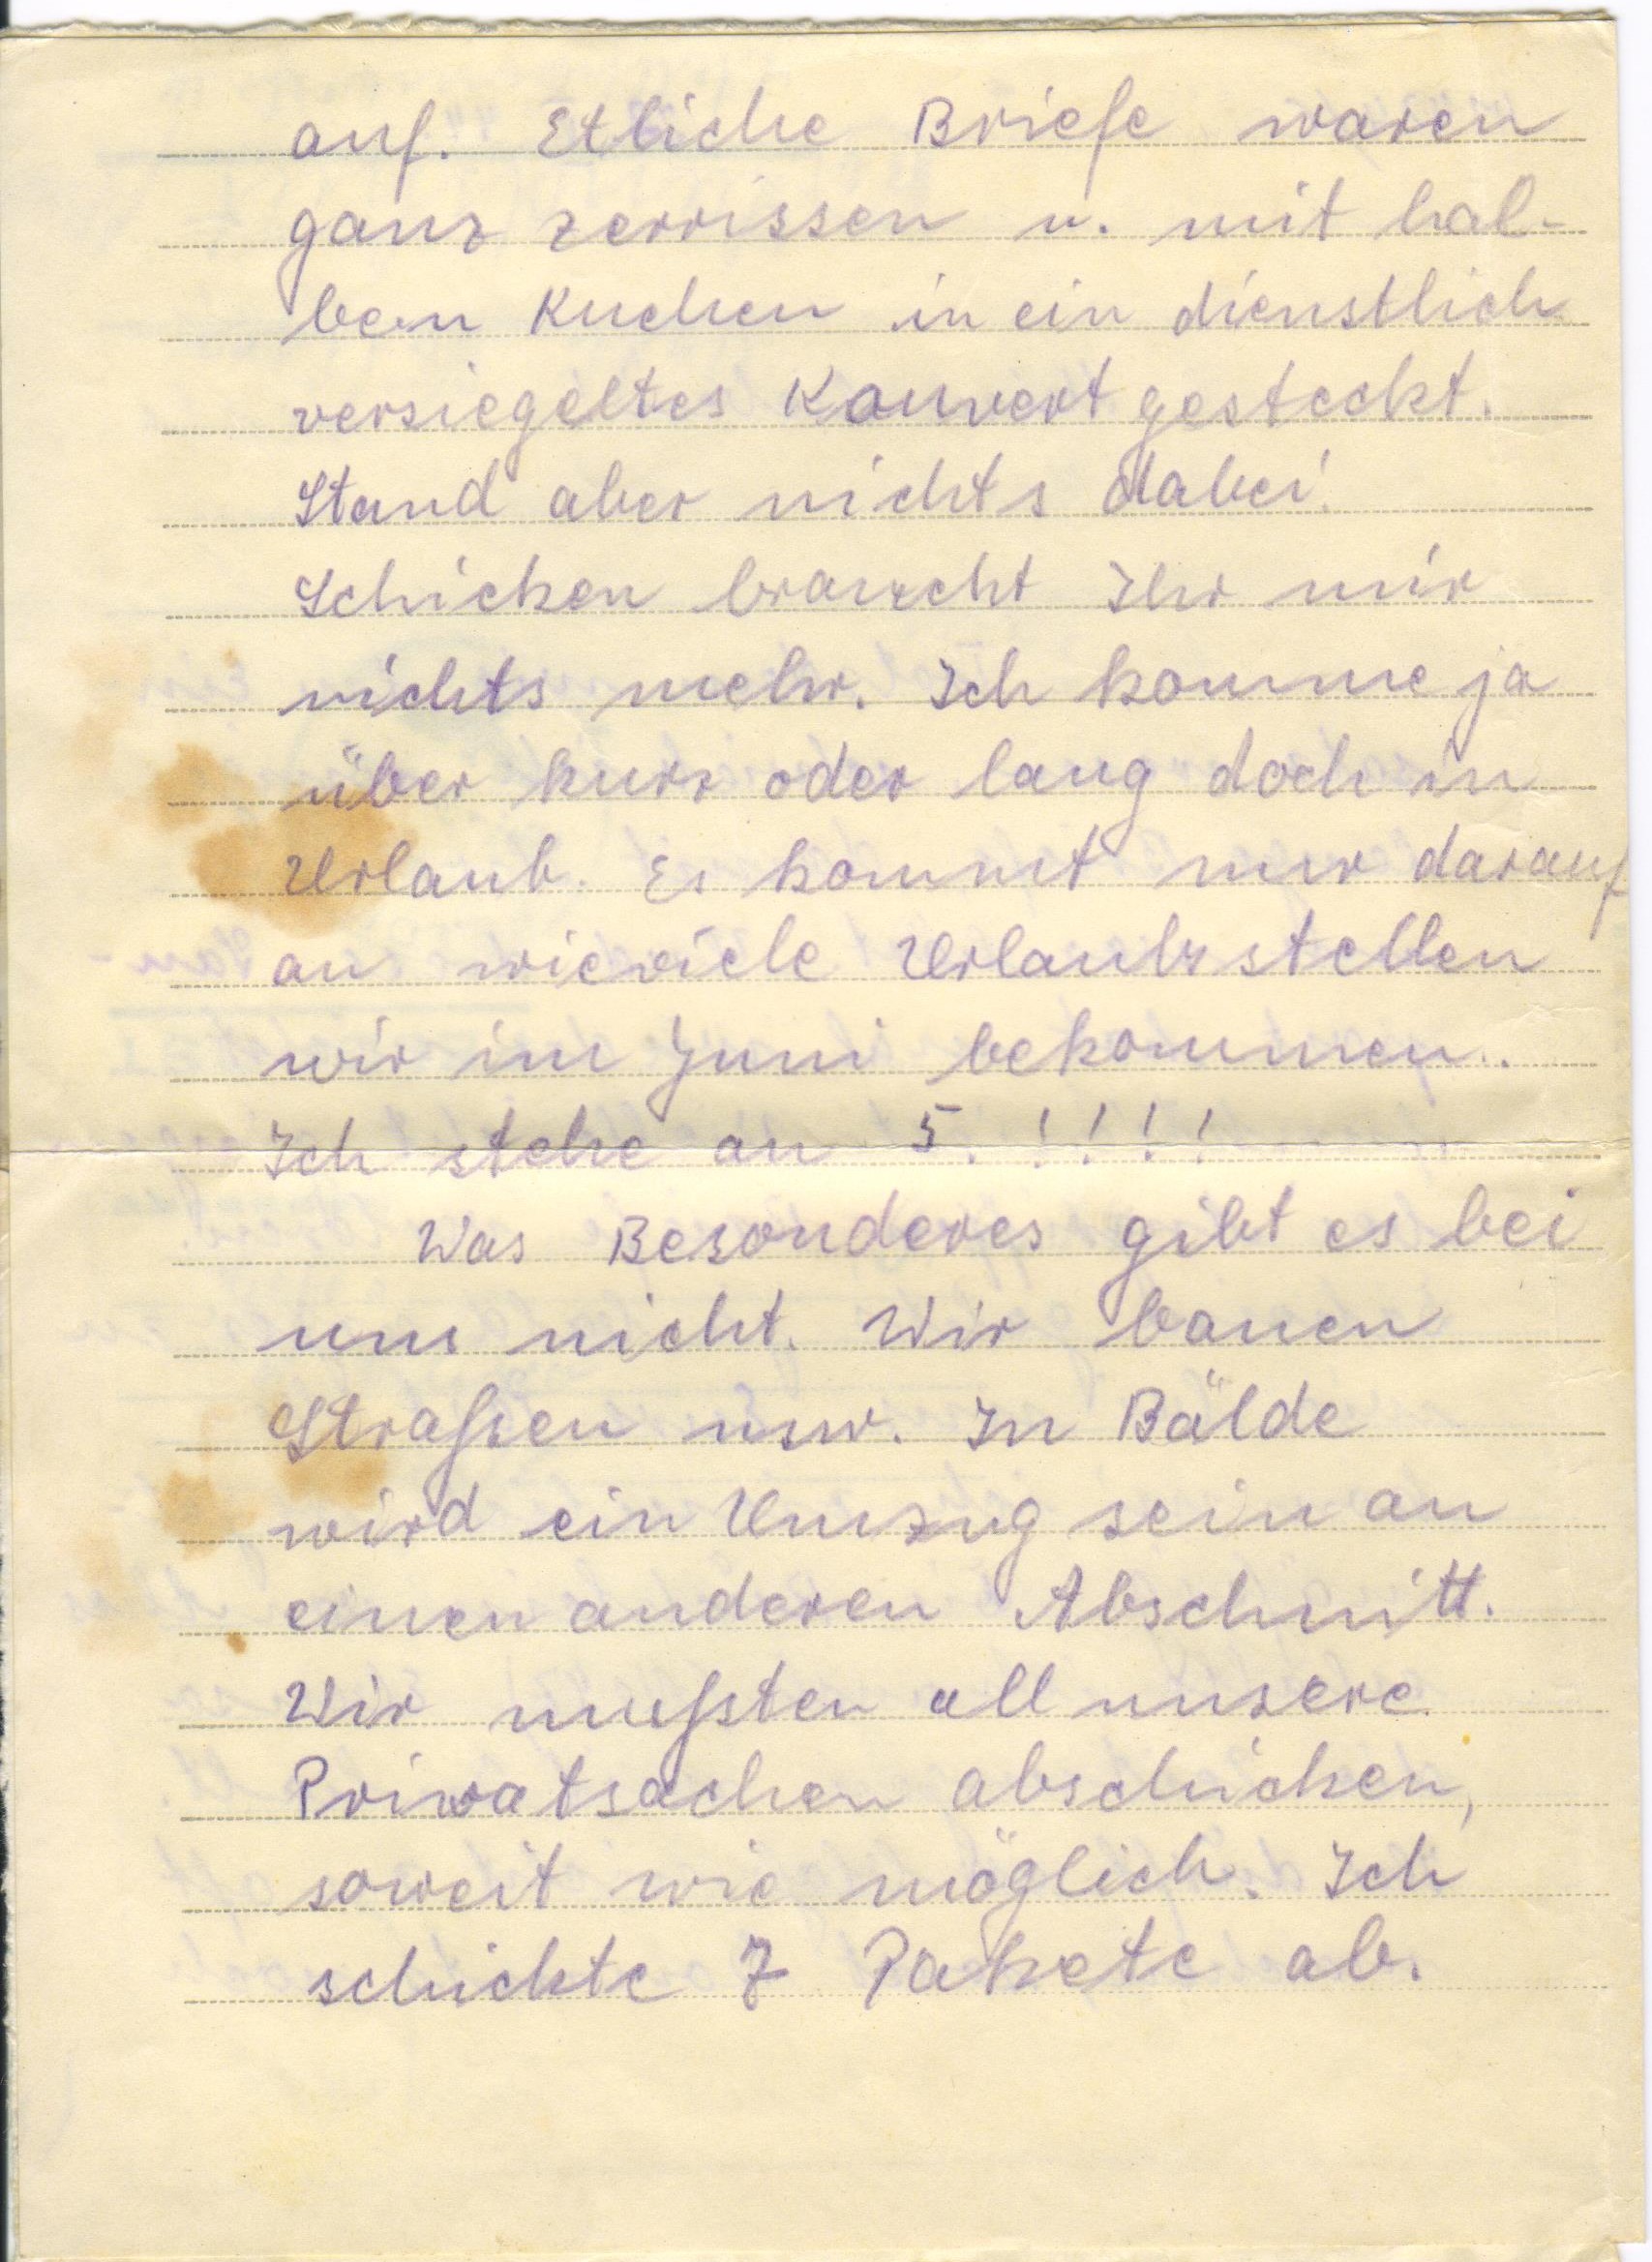 auf. Etliche Briefe waren
ganz zerrissen u. mit hal-
bem Kuchen in ein dienstlich
versiegeltes Kouvert gesteckt.
Stand aber nichts dabei.
Schicken braucht Ihr mir
nichts mehr. Ich komme ja
über kurz oder lang doch in
Urlaub. Es kommt nur darauf
an wieviele Urlaubsstellen
wir im Juni bekommen.
Ich stehe an 5. !!!!
Was Besonderes gibt es bei
uns nicht. Wir bauen
Straßen usw. In Bälde
wird ein Umzug sein an
einen anderen Abschnitt.
Wir mußten all unsere
Privatsachen abschicken,
soweit wie möglich. Ich
schickte 7 Pakete ab.